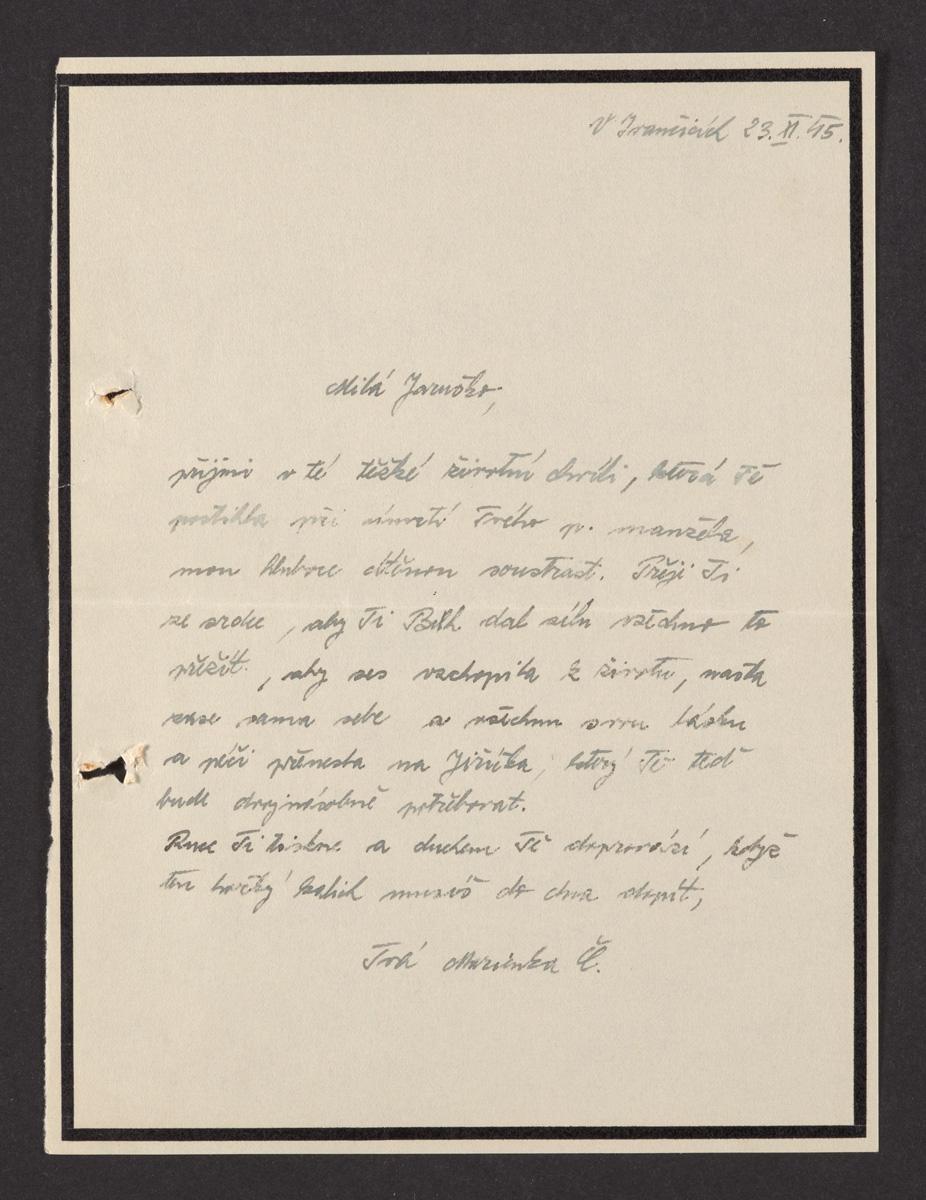 V Ivančicích 23.XI.45.
Milá Jaruško,
přijmi v té těžké životní chvíli, která Tě
postihla při úmrtí Tvého p. manžela,
mou hluboce cítěnou soustrast. Přeji Ti
ze srdce, aby Ti Bůh dal sílu všechno to
přežít, aby ses vzchopila k životu, našla
zase sama sebe a všechnu svou lásku
a péči přenesla na Jiříčka, který Tě teď
bude dvojnásobně potřebovat.
Ruce Ti tiskne a duchem Tě doprovází, když
ten hořký kalich musíš do dna dopít,
Tvá Mařenka Č.